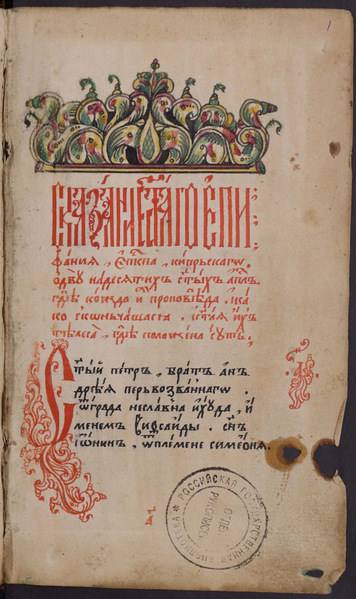 1
Сказание стаго епи
фания, епⷭ҇кпа, кипрьскагѡ,
ѡдву надесятихъ ст҃ыхъ апⷭ҇лъ,
гдѣ кождо их проповѣда, и ка
ко скѡньчашася. и ст҃ая ихъ
телеса, гдѣ положена суть,
Ст҃ый петръ, братъ ан
дрѣя первозваннагѡ
ѿграда неславна иꙋхуда, и
менемъ виѳсаиды. сн҃ъ
іѡнинъ. ѿплемене симеѡня.
а҃
РОССИЙСКАЯ ГОСУДАРСТВЕННАЯ БИБЛИОТЕКА
ОТДЕЛ
РУКОПИСЕЙ